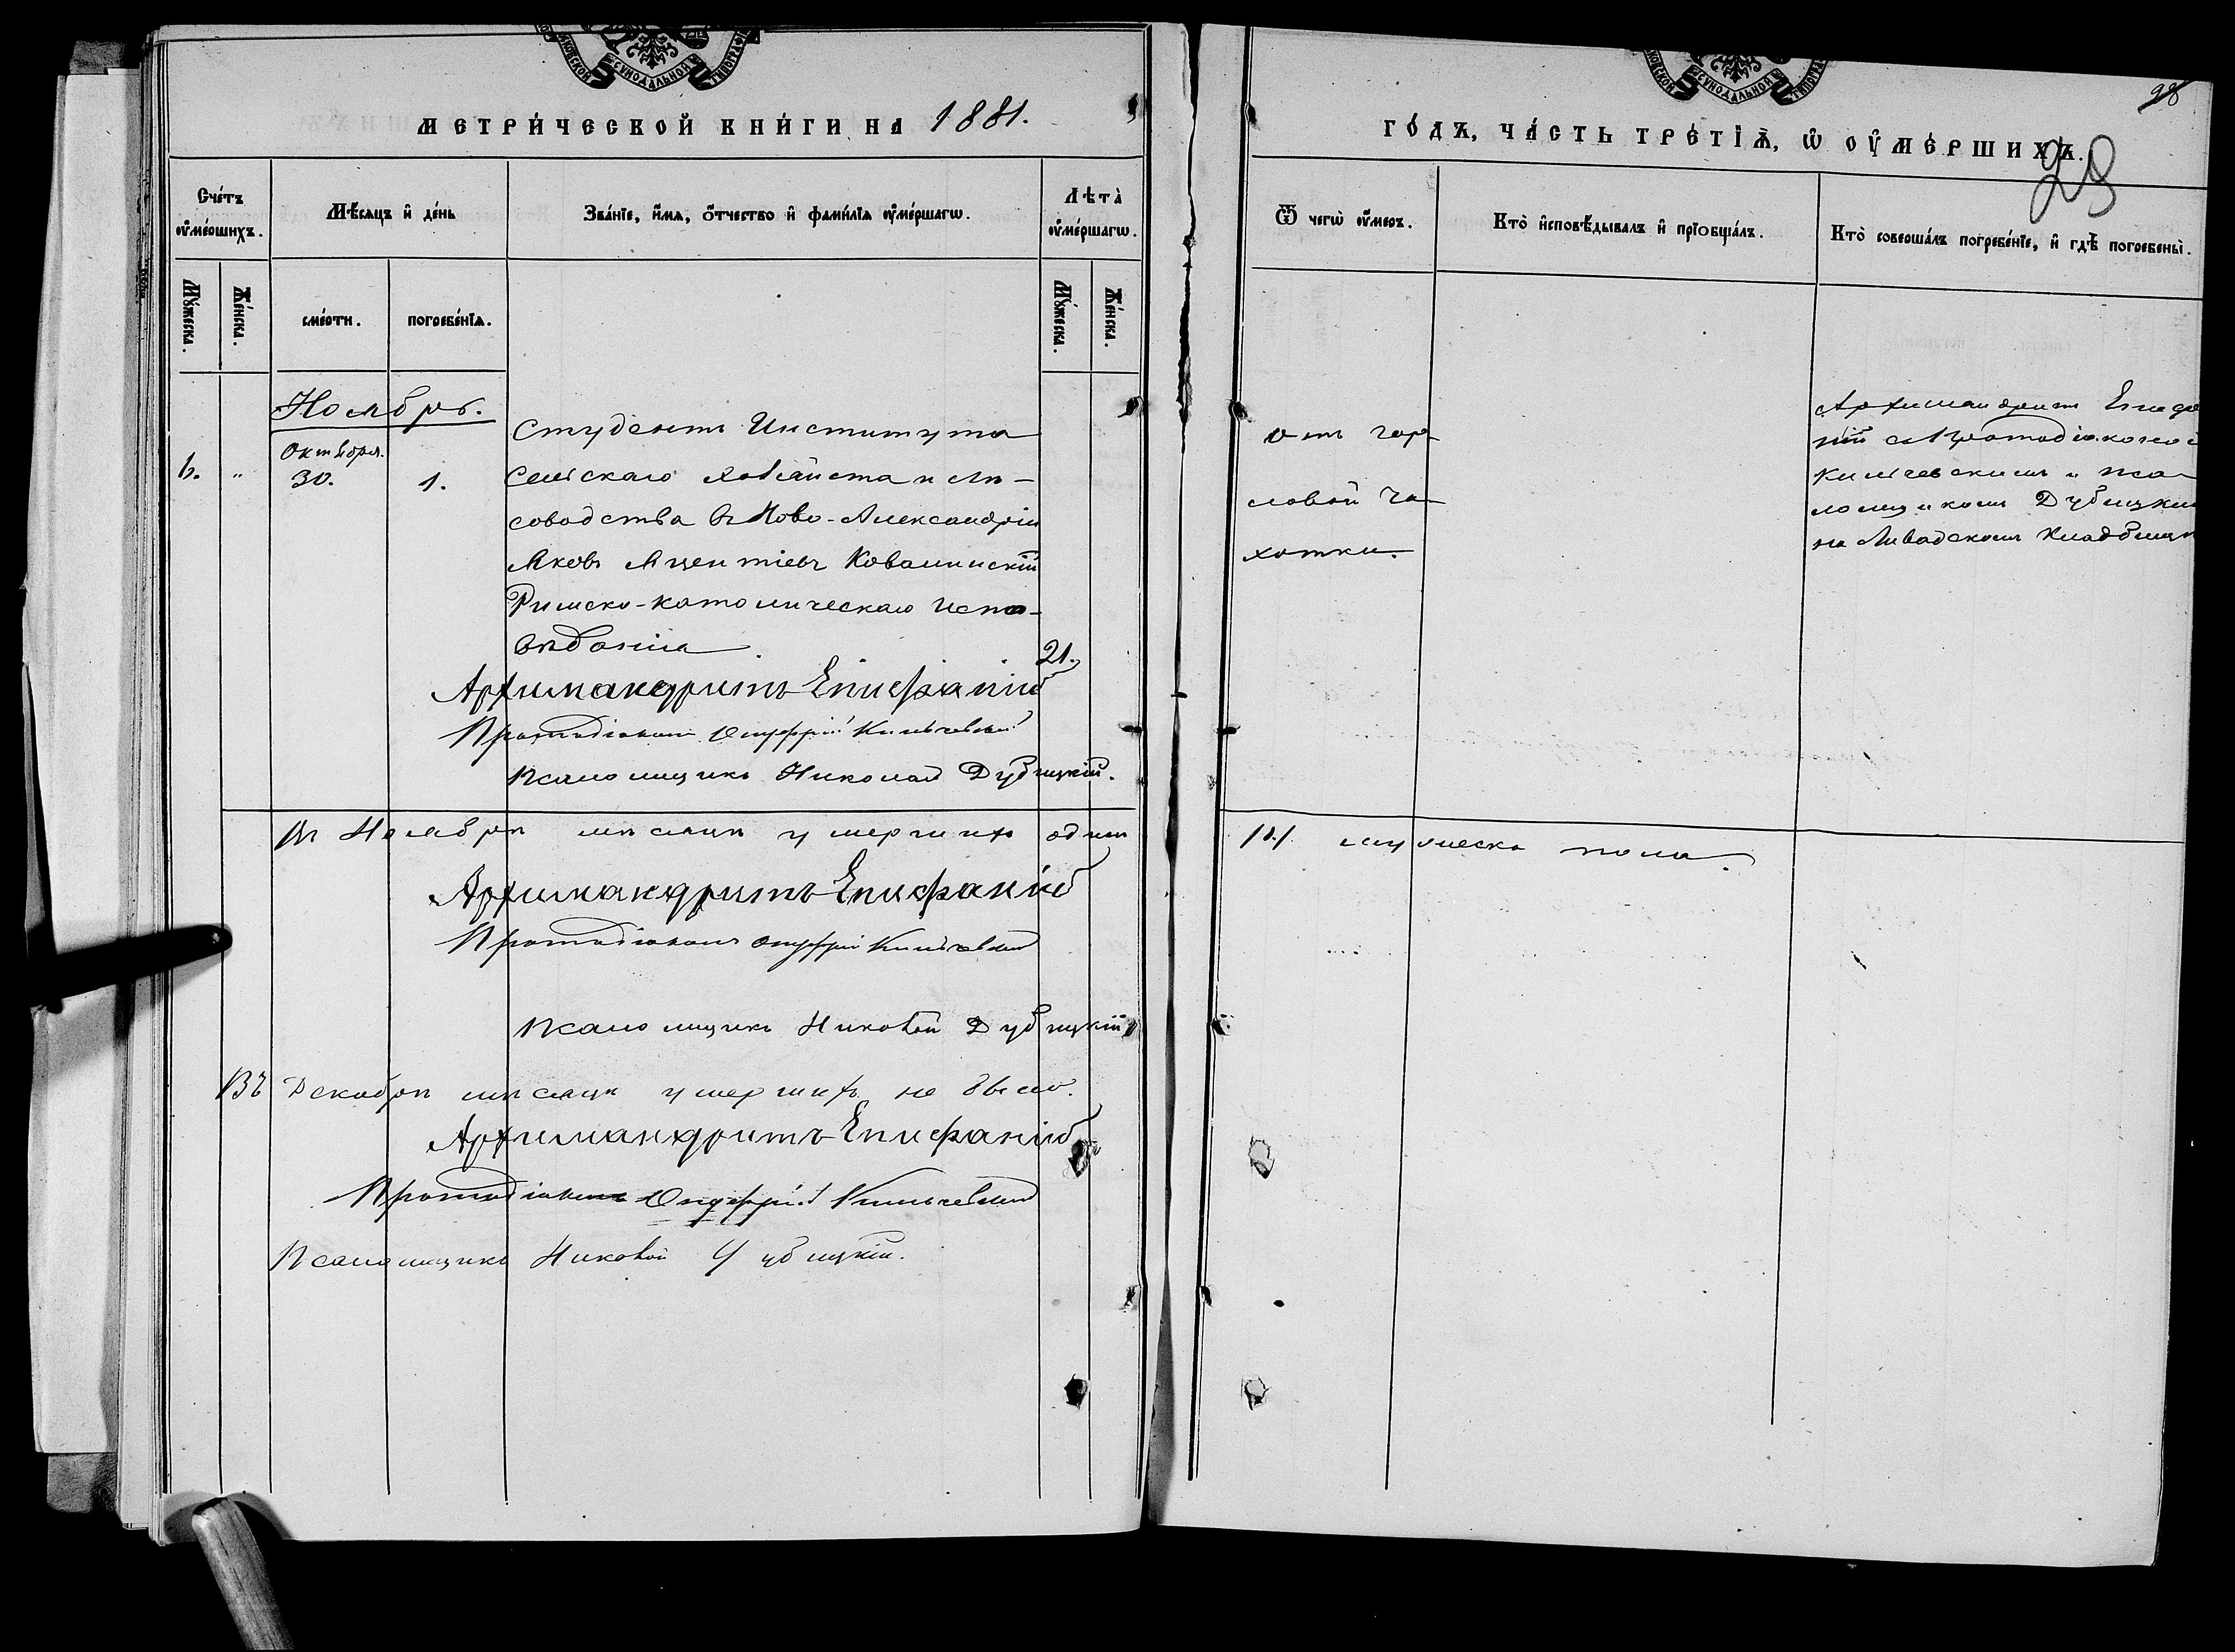 МЕТРИ́ЧЕСКОЙ КНИ́ГИ НА 1881.
Сче́тъ ᲂу҆ме́ршихъ.
Мѣ́сѧцъ и҆ де́нь
Зва́нїе, и҆́мѧ, ѻ҆́тчество и҆ фами́лїѧ ᲂу҆ме́ршагѡ.
Лѣта̀ ᲂу҆ме́ршагѡ.
Мꙋ́жеска.
Же́нска.
сме́рти.
погребе́нїѧ.
Мꙋ́жеска.
Же́нска.
Ноябрь.
Октября.
6. " 30. 1.
Студентъ Института
Сельскаго хозяйста и Лѣ-
соводства въ Ново-Александріи
Яковъ Яцентіевъ Ковалинскій
Римско-католическаго испо-
вѣданія.
21.
Архимандритъ Епифаній
Протодіаконъ Онуфрій Кильчевскій
Псаломщикъ Николай Дубицкій.
Въ Ноябрѣ мѣсяцѣ умершихъ одинъ
Архимандритъ Епифаній
Протодіаконъ Онуфрій Кильчевскій
Псаломщикъ Николай Дубицкій
Въ Декабрѣ мѣсяцѣ умершихъ не было.
Архимандритъ Епифаній
Протодіаконъ Онуфрій Кильчевскій
Псаломщикъ Николай Дубицкій.
28
ГО́ДЪ, ЧА́СТЬ ТРЕ́ТЇѦ, Ѡ҆ ОУ҆МЕ́РШИХЪ.
28
Ѿ чегѡ̀ ᲂу҆́меръ.
Кто̀ и҆сповѣ́дывалъ и҆ прїобща́лъ.
Кто̀ соверша́лъ погребе́нїе, и҆ гдѣ̀ погребены̀.
отъ гор-
ловой ча-
хотки.
Архимандритъ Епифа
ній съ Протодіакономъ
Кильчевскимъ и пса-
ломщикомъ Дубицкимъ
на Ливадскомъ Кладбищѣ
(1) мужеска пола.